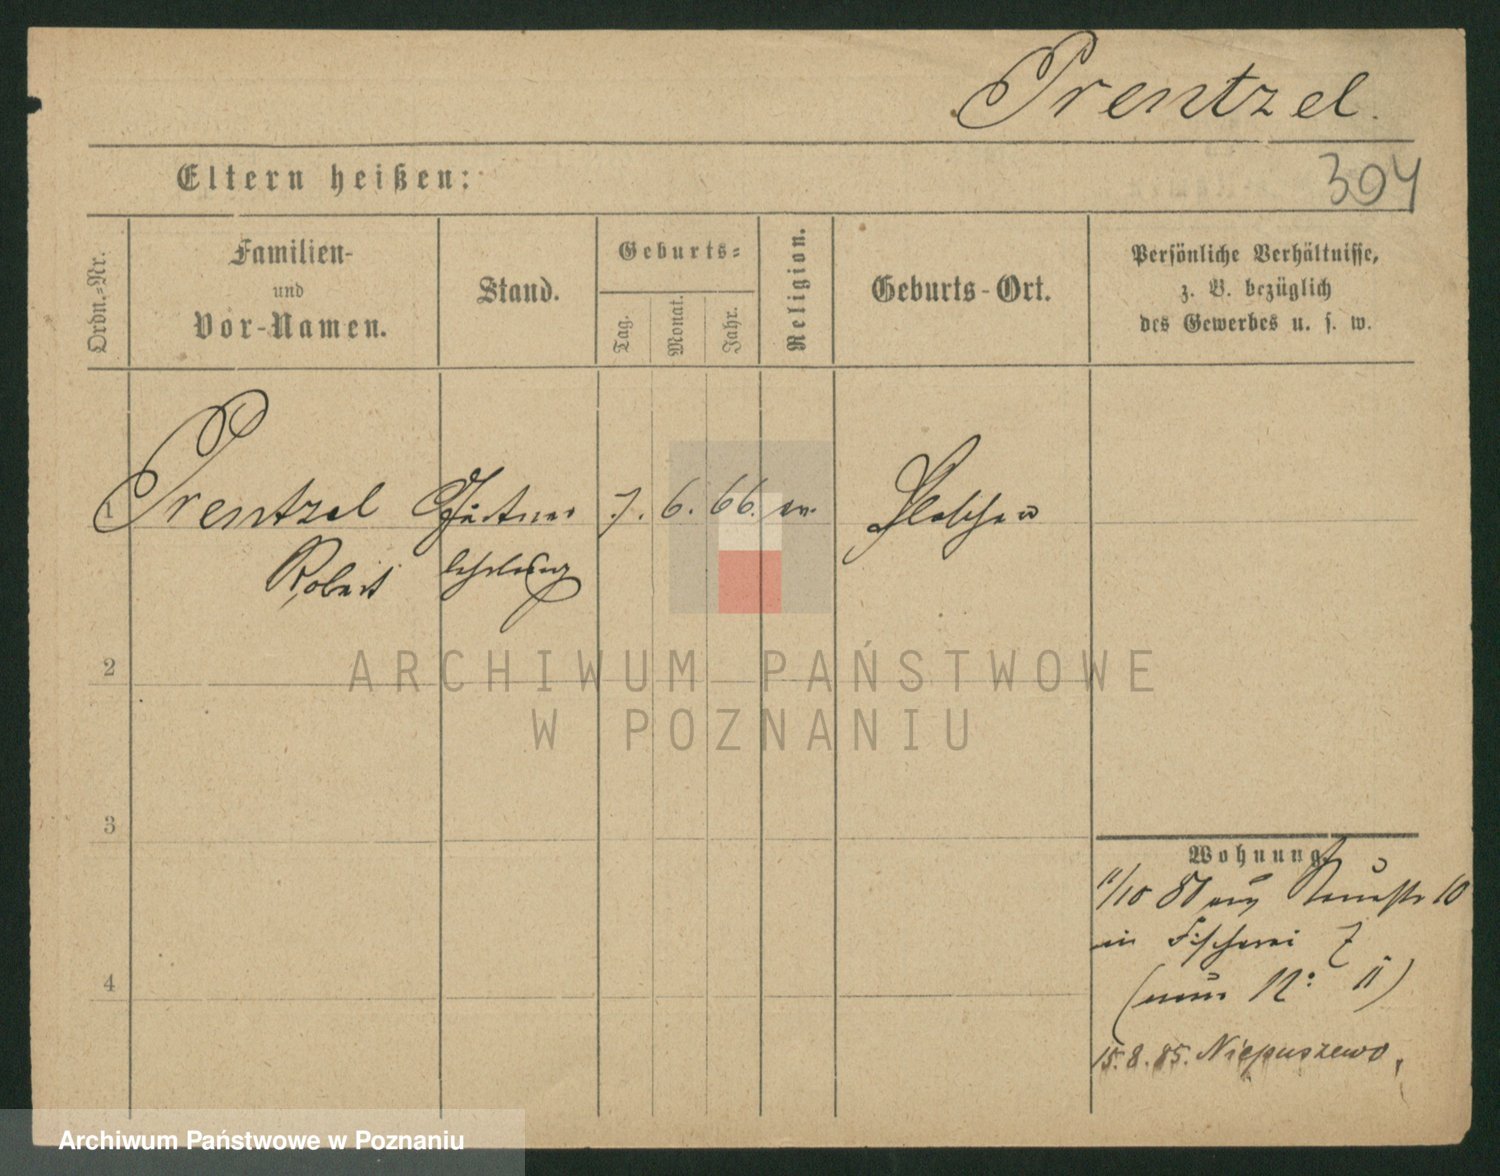 Prentzel.
304
Eltern heißen:
Ordn.-Nr.
Familien-
und
Vor-Namen.
Stand.
Geburts-
Tag.
Monat.
Jahr.
Religion.
Geburts-Ort.
Persönliche Verhältnisse,
z. B. bezüglich
des Gewerbes u. s. w.
1 Prentzel Gärtner 7. 6. 66. ev.
Robert lehrling
2
ARCHIWUM PAŃSTWOWE
W POZNANIU
3
4
Wohnung.
11/10 10
in Fischerei 7
(neue No 11)
15.8.85. Niepruszewo,
Archiwum Państwowe w Poznaniu